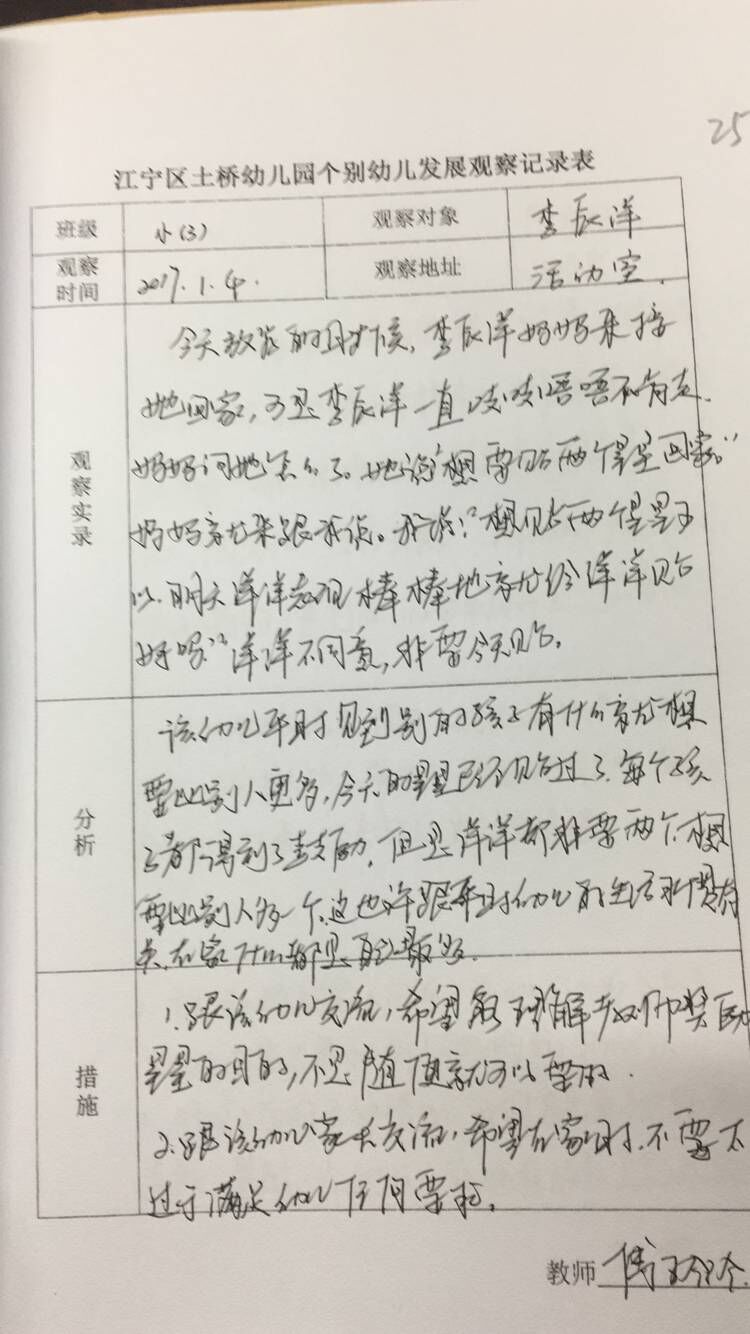 25
江宁区土桥幼儿园个别幼儿发展观察记录表
班级 小(3) 观察对象 李辰洋
观察时间 2017.1.4. 观察地址 活动室.
观察实录
今天放学的时候，李辰洋妈妈来接
她回家，可是李辰洋一直吱吱唔唔不肯走.
妈妈问她怎么了。她说“想要贴两个星星回家。”
妈妈就来跟我说。我说：“想贴两个星星可
以.明天洋洋表现棒棒地就给洋洋贴
好吗”洋洋不同意，非要今天贴。
分析
该幼儿平时见到别的孩子有什么就想
要比别人更多，今天的星星已经贴过了.每个孩
子都得到了鼓励，但是洋洋都非要两个.想
要比别人多一个.这也许跟平时幼儿的生活习惯有
关.在家什么都是自己最多.
措施
1.跟该幼儿交流，希望能理解老师奖励
星星的目的，不是随便就可以要的.
2.跟该幼儿家长交流，希望在家时.不要太
过于满足幼儿任何要求。
教师